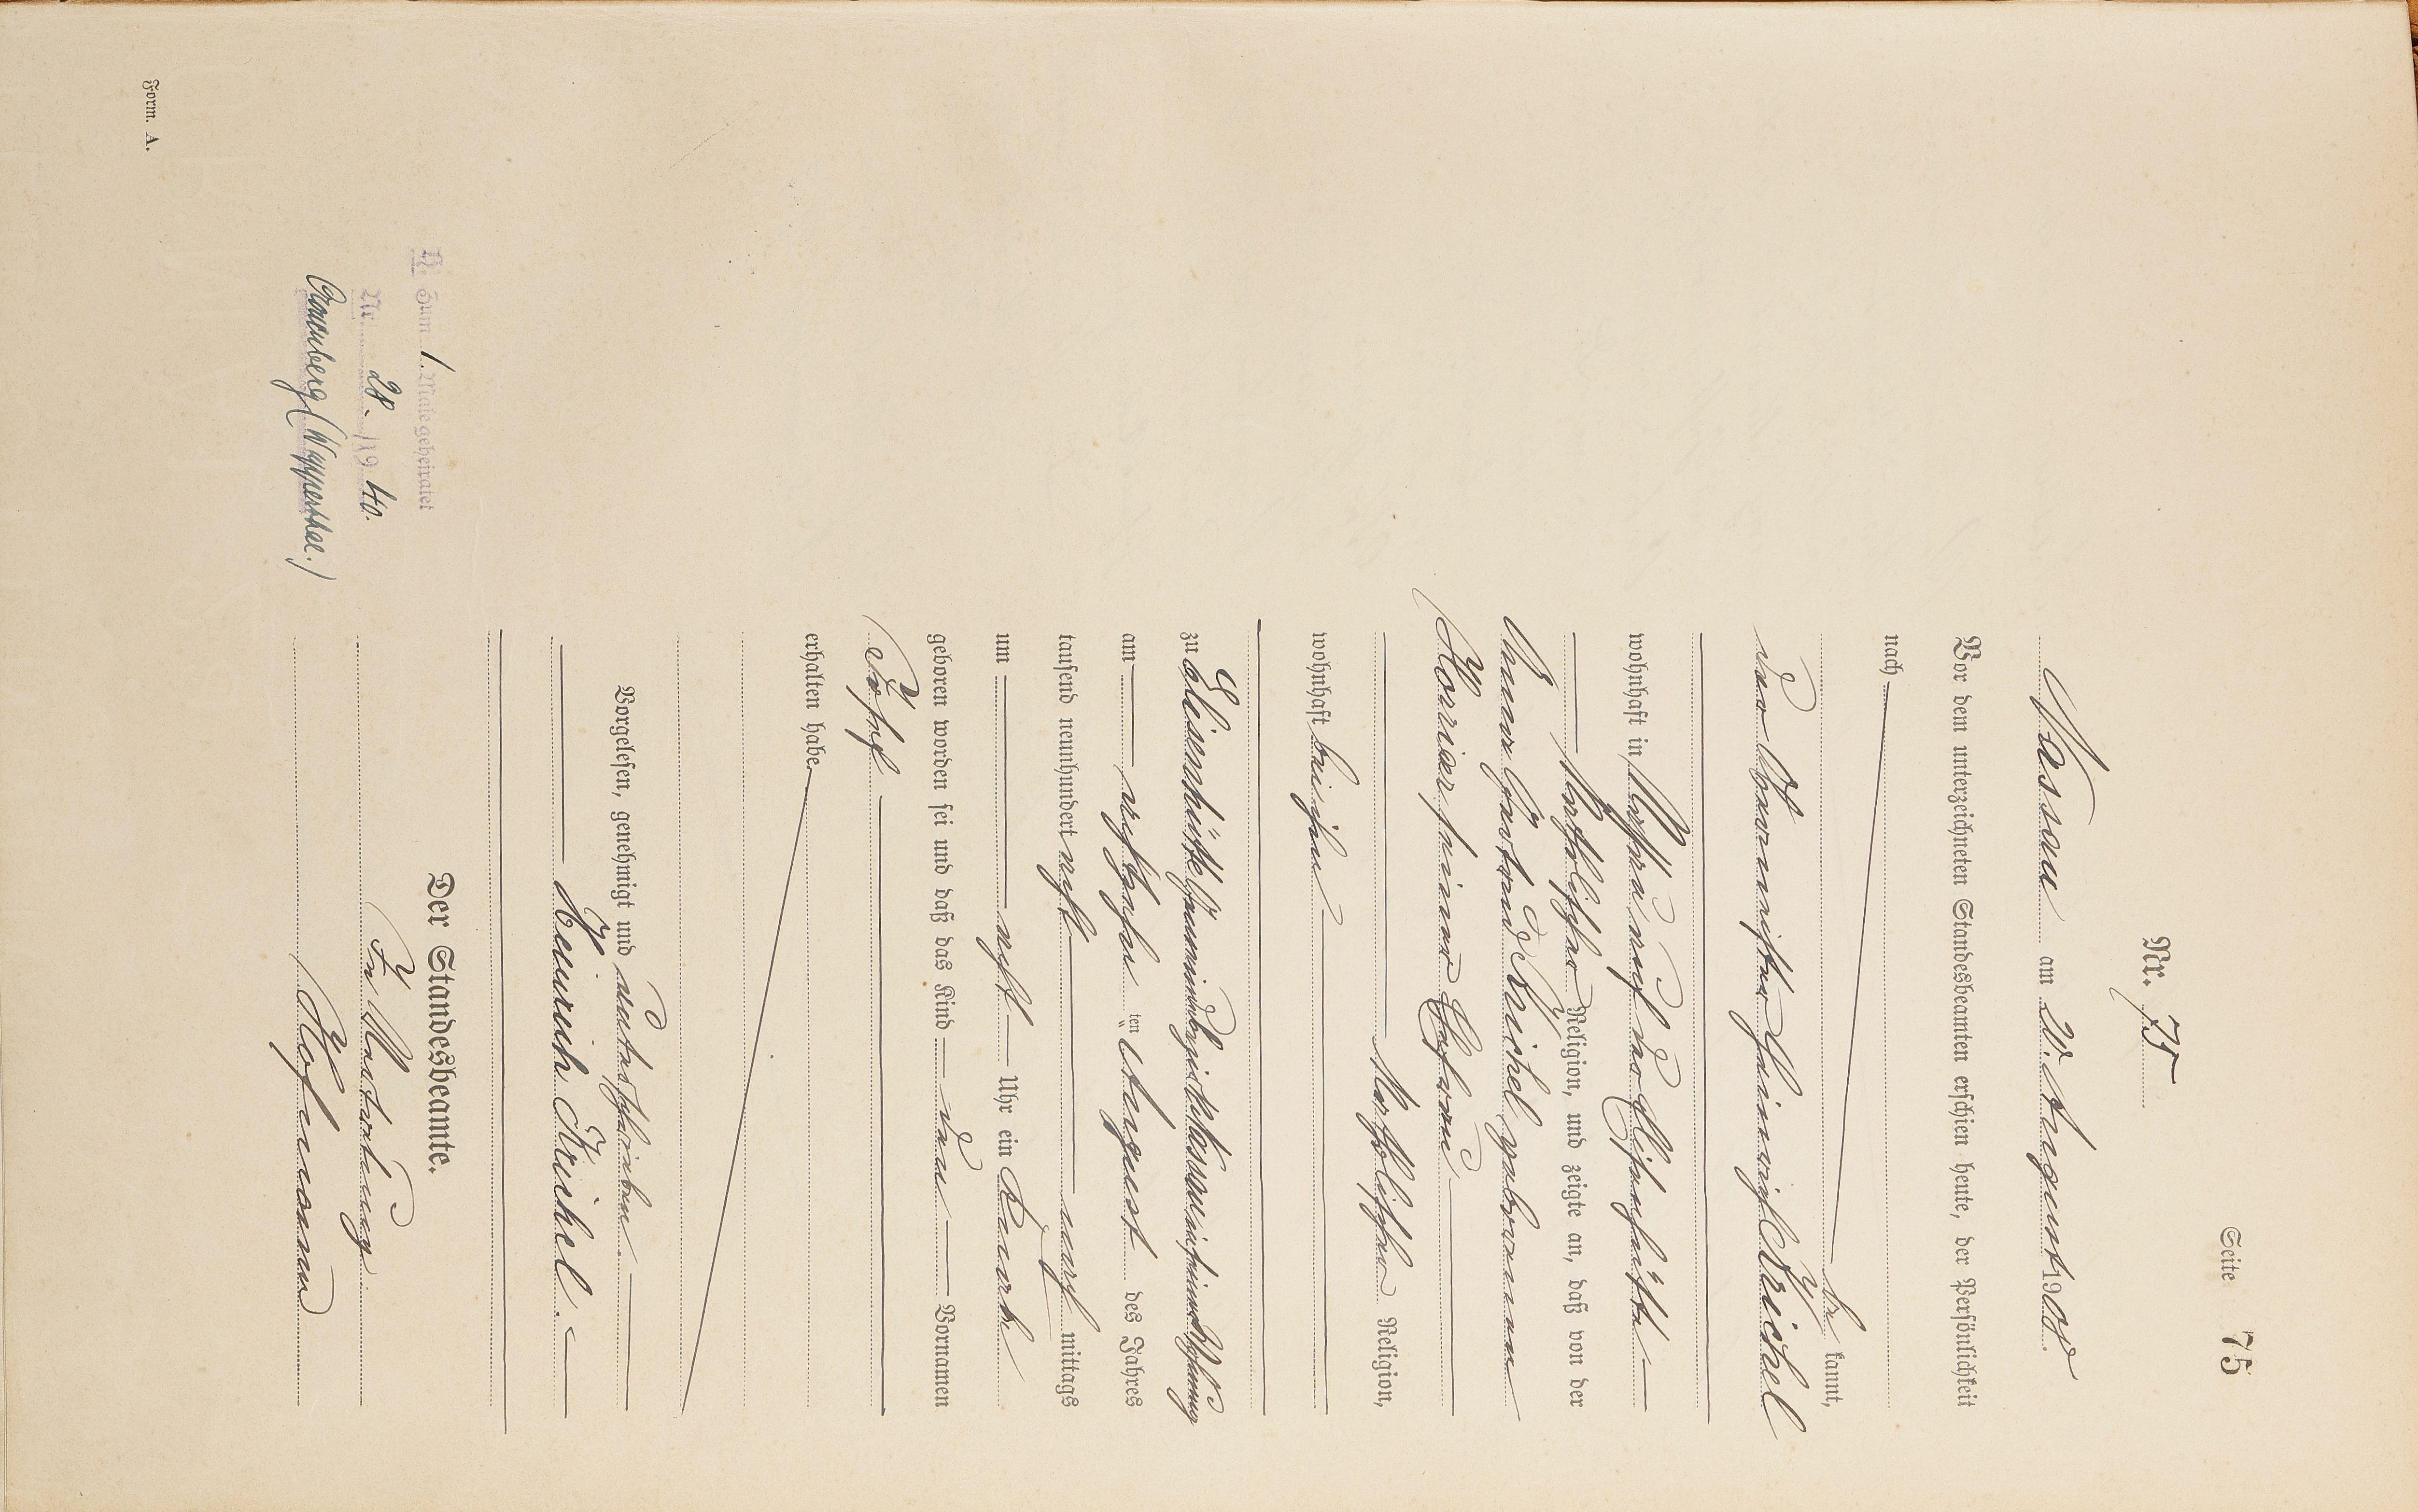 Seite 75
Nr. 75
Nassau am 20. August 1908.
Vor dem unterzeichneten Standesbeamten erschien heute, der Persönlichkeit
nach
be kannt,
der Heinrich Krichel
wohnhaft in Nassau auf der Elisenhütte
katholischer Religion, und zeigte an, daß von der
Anna Gertrud Krichel geborenen
seiner Ehefrau
katholischer Religion,
wohnhaft bei ihm
zu Elisenhütte Gemeindebezirk Nassau in seiner Wohnung
am achtzehnten August des Jahres
tausend neunhundert acht nachmittags
um acht Uhr ein Knabe
geboren worden sei und daß das Kind den Vornamen
Josef
erhalten habe.
Vorgelesen, genehmigt und unterschrieben.
Heinrich Krichel.
Der Standesbeamte.
In Vertretung
Hofmann
H. Zum 1. Male geheiratet
Nr. 28. /19 40.
Cronenberg (Wupperthal.)
Form. A.